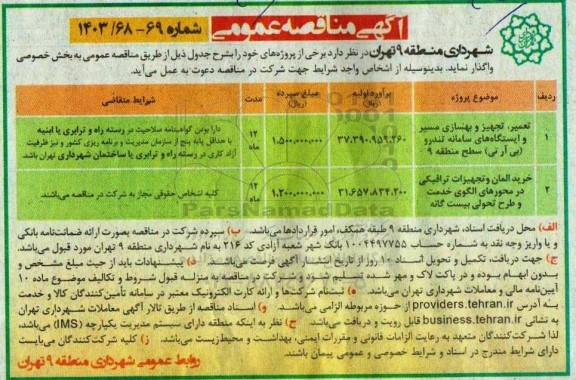 آگهی مناقصه عمومی
شماره ۶۹-۶۸/۱۴۰۳
شهرداری منطقه ۹ تهران در نظر دارد برخی از پروژه‌های خود را بشرح جدول ذیل از طریق مناقصه عمومی به بخش خصوصی
واگذار نماید. بدینوسیله از اشخاص واجد شرایط جهت شرکت در مناقصه دعوت به عمل می‌آید.
ردیف موضوع پروژه برآورد اولیه (ریال) مبلغ سپرده (ریال) مدت شرایط متقاضی
۱ تعمیر، تجهیز و بهسازی مسیر و ایستگاه‌های سامانه تندرو (بی آر تی) سطح منطقه ۹ ۳۷.۳۹۰.۹۵۹.۲۶۰ ۱.۵۰۰.۰۰۰.۰۰۰ ۱۲ ماه دارا بودن گواهینامه صلاحیت در رسته راه و ترابری یا ابنیه با حداقل پایه پنج از سازمان مدیریت و برنامه ریزی کشور و نیز ظرفیت آزاد کاری در رسته راه و ترابری یا ساختمان شهرداری تهران باشد.
۲ خرید المان و تجهیزات ترافیکی در محورهای الگوی خدمت و طرح تحولی بیست گانه ۳۱.۶۵۷.۸۳۴.۲۰۰ ۱.۲۰۰.۰۰۰.۰۰۰ ۱۲ ماه کلیه اشخاص حقوقی مجاز به شرکت در مناقصه می‌باشند
ParsNamadData
الف) محل دریافت اسناد، شهرداری منطقه ۹ طبقه همکف، امور قراردادها می‌باشد. ب) سپرده شرکت در مناقصه بصورت ارائه ضمانت‌نامه بانکی
و یا واریز وجه نقد به شماره حساب ۱۰۰۴۴۹۷۷۵۵ بانک شهر شعبه آزادی کد ۲۱۶ به نام شهرداری منطقه ۹ تهران مورد قبول می‌باشد.
ج) جهت دریافت، تکمیل و تحویل اسناد ۱۰ روز از تاریخ انتشار آگهی فرصت می‌باشد. د) پیشنهادات باید از حیث مبلغ مشخص و
بدون ابهام بوده و در پاکت لاک و مهر شده تسلیم شود و شرکت در مناقصه به منزله قبول شروط و تکالیف موضوع ماده ۱۰
آیین‌نامه مالی و معاملات شهرداری تهران می‌باشد. ه) ثبت‌نام شرکت‌ها و ارائه کارت الکترونیک معتبر در سامانه تأمین‌کنندگان کالا و خدمت
به آدرس providers.tehran.ir از حوزه مربوطه الزامی می‌باشد. و) اسناد مناقصه از طریق تالار آگهی معاملات شهرداری تهران
به نشانی business.tehran.ir قابل رویت و دریافت می‌باشد. ح) نظر به اینکه منطقه دارای سیستم مدیریت یکپارچه (IMS) می‌باشد،
لذا شرکت‌کنندگان متعهد به رعایت الزامات قانونی و مقررات ایمنی، بهداشت و محیط‌زیست می‌باشد. ز) کلیه شرکت‌کنندگان می‌بایست
دارای شرایط مندرج در اسناد و شرایط خصوصی و عمومی پیمان باشند.
روابط عمومی شهرداری منطقه ۹ تهران